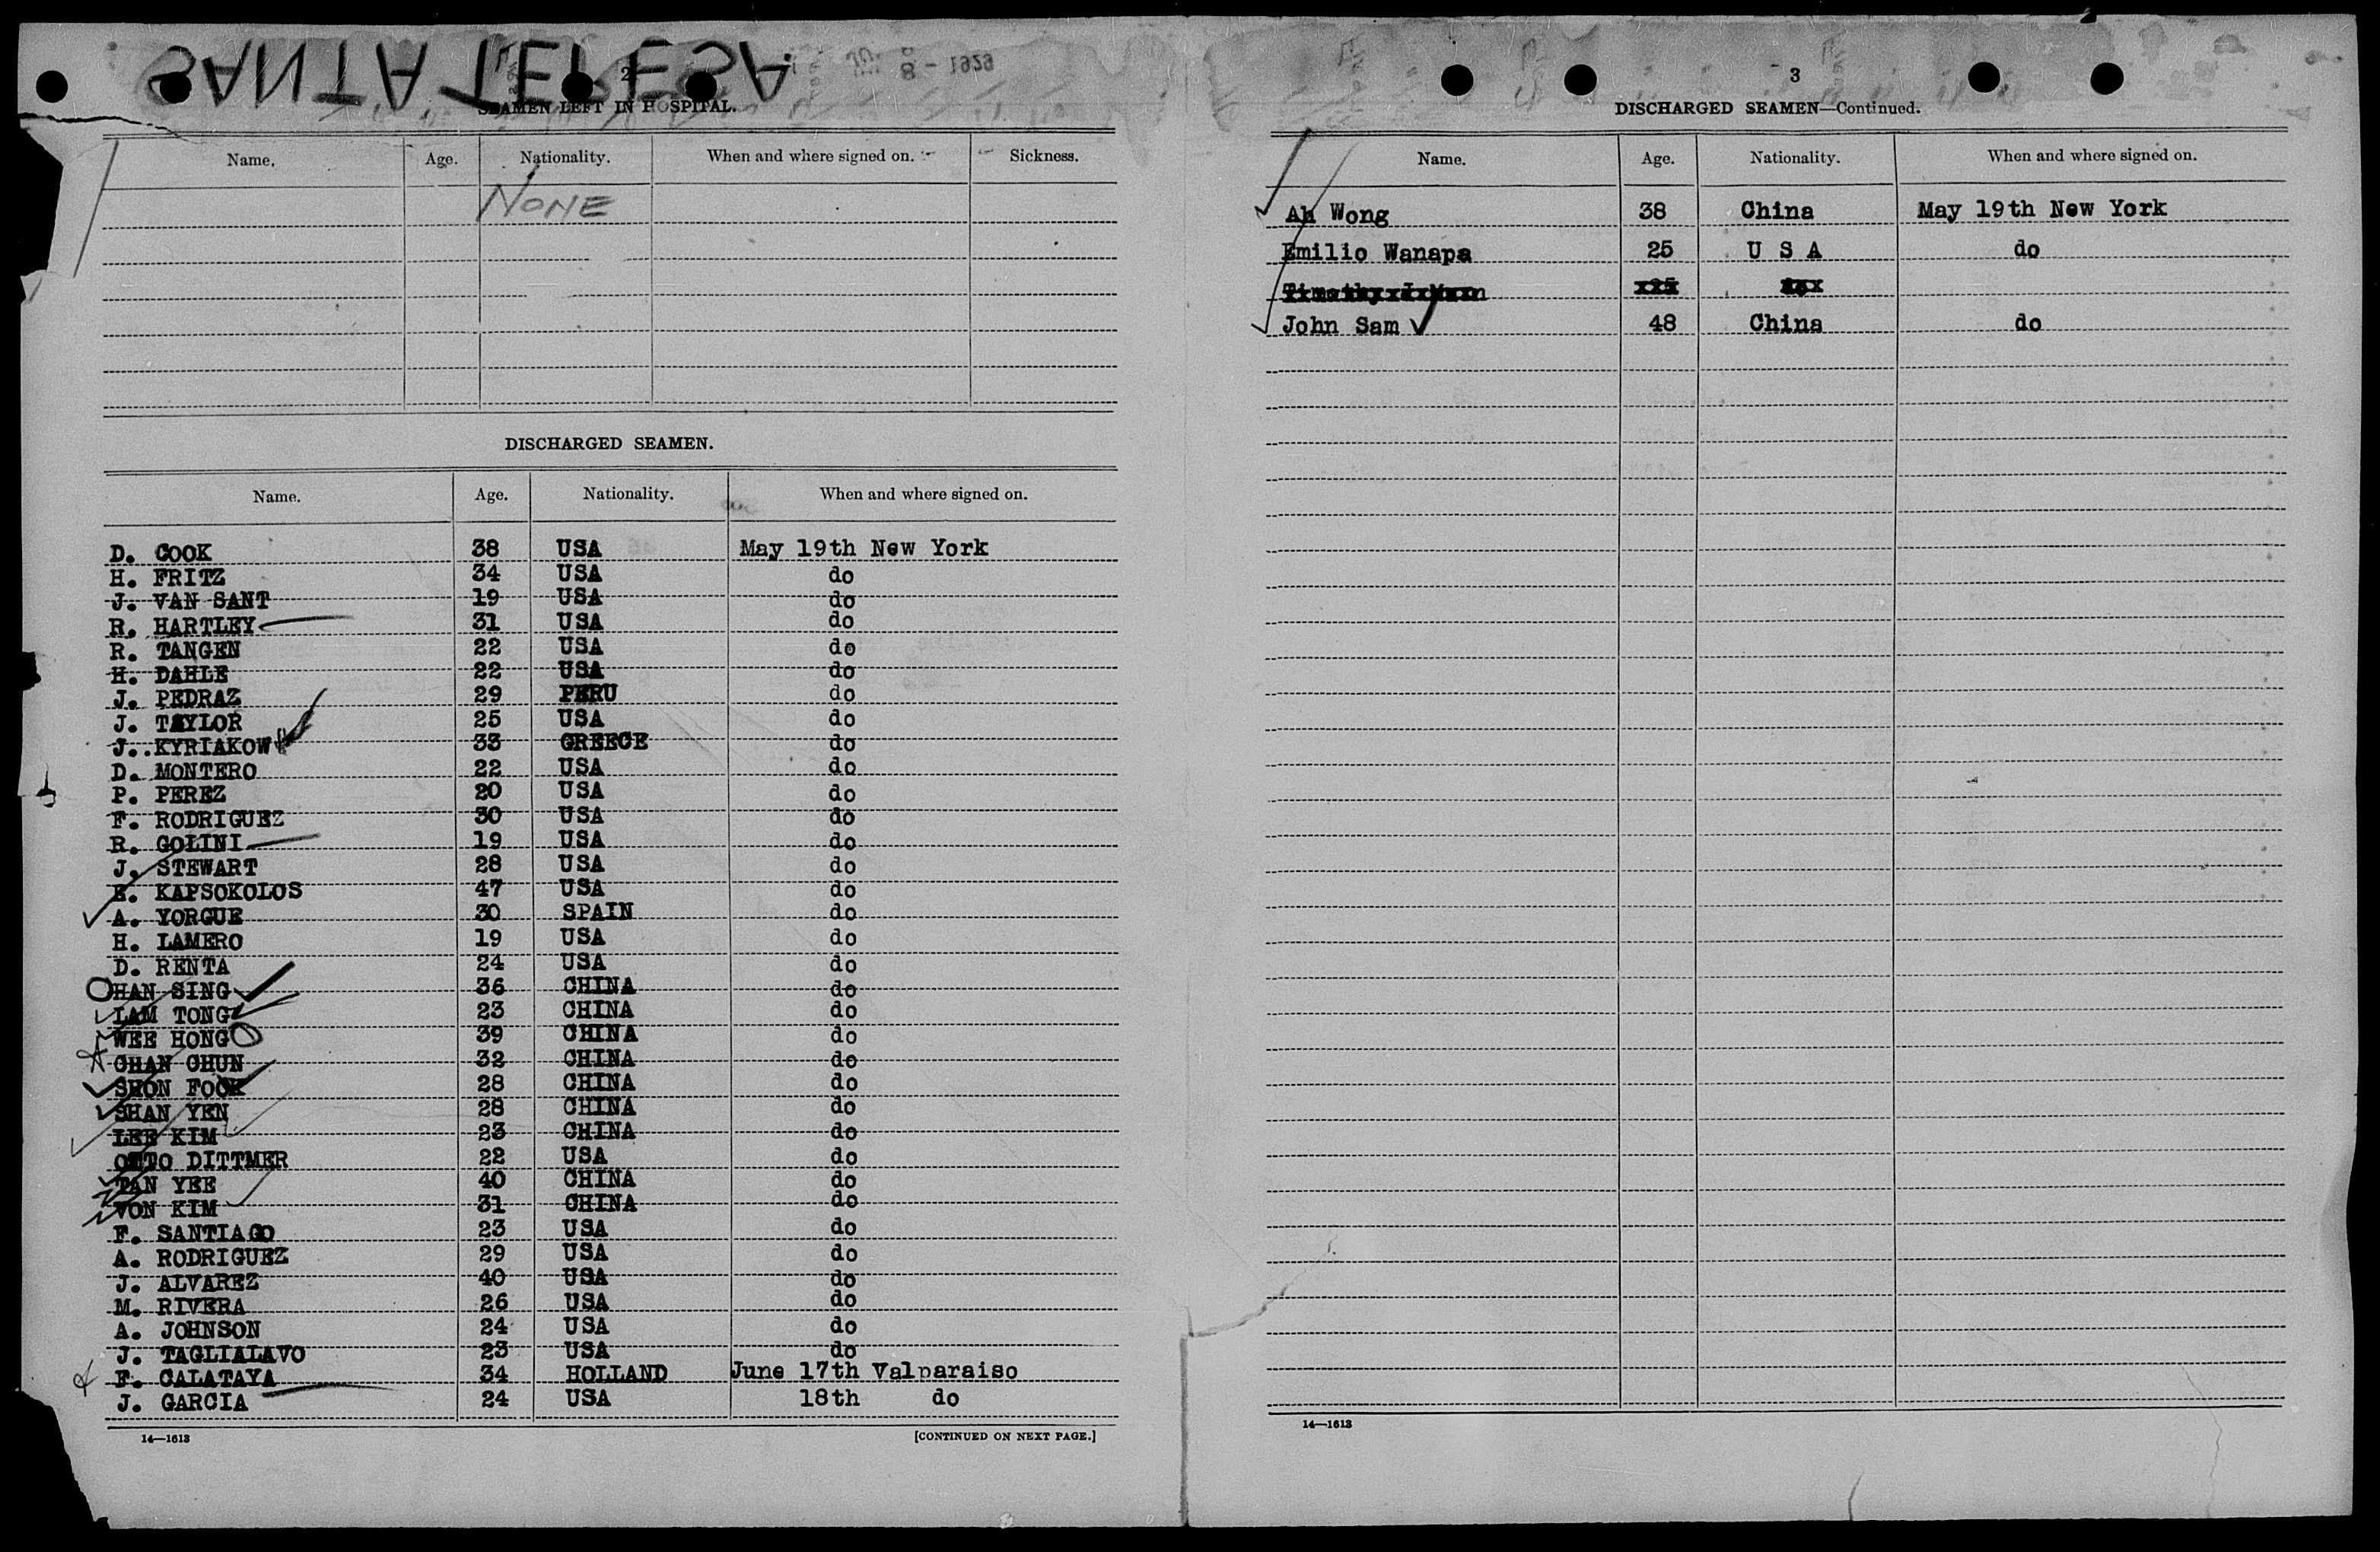 SANTA TERESA
8 - 1929
2
SEAMEN LEFT IN HOSPITAL.
Name. Age. Nationality. When and where signed on. Sickness.
NONE
DISCHARGED SEAMEN.
Name. Age. Nationality. When and where signed on.
D. COOK 38 USA May 19th New York
H. FRITZ 34 USA do
J. VAN SANT 19 USA do
R. HARTLEY 31 USA do
R. TANGEN 22 USA do
H. DAHLE 22 USA do
J. PEDRAZ 29 PERU do
J. TAYLOR 25 USA do
J. KYRIAKOW 33 GREECE do
D. MONTERO 22 USA do
P. PEREZ 20 USA do
F. RODRIGUEZ 30 USA do
R. GOLINI 19 USA do
J. STEWART 28 USA do
E. KAPSOKOLOS 47 USA do
A. YORGUE 30 SPAIN do
H. LAMERO 19 USA do
D. RENTA 24 USA do
HAN SING 36 CHINA do
LAM TONG 23 CHINA do
WEE HONG 39 CHINA do
CHAN CHUN 32 CHINA do
SHON FOOK 28 CHINA do
SHAN YEN 28 CHINA do
LEE KIM 23 CHINA do
OTTO DITTMER 22 USA do
TAN YEE 40 CHINA do
VON KIM 31 CHINA do
F. SANTIAGO 23 USA do
A. RODRIGUEZ 29 USA do
J. ALVAREZ 40 USA do
M. RIVERA 26 USA do
A. JOHNSON 24 USA do
J. TAGLIALAVO 23 USA do
F. CALATAYA 34 HOLLAND June 17th Valparaiso
J. GARCIA 24 USA 18th do
14—1613 [CONTINUED ON NEXT PAGE.]
3
DISCHARGED SEAMEN—Continued.
Name. Age. Nationality. When and where signed on.
Ah Wong 38 China May 19th New York
Emilio Wanapa 25 U S A do
John Sam 48 China do
14—1613